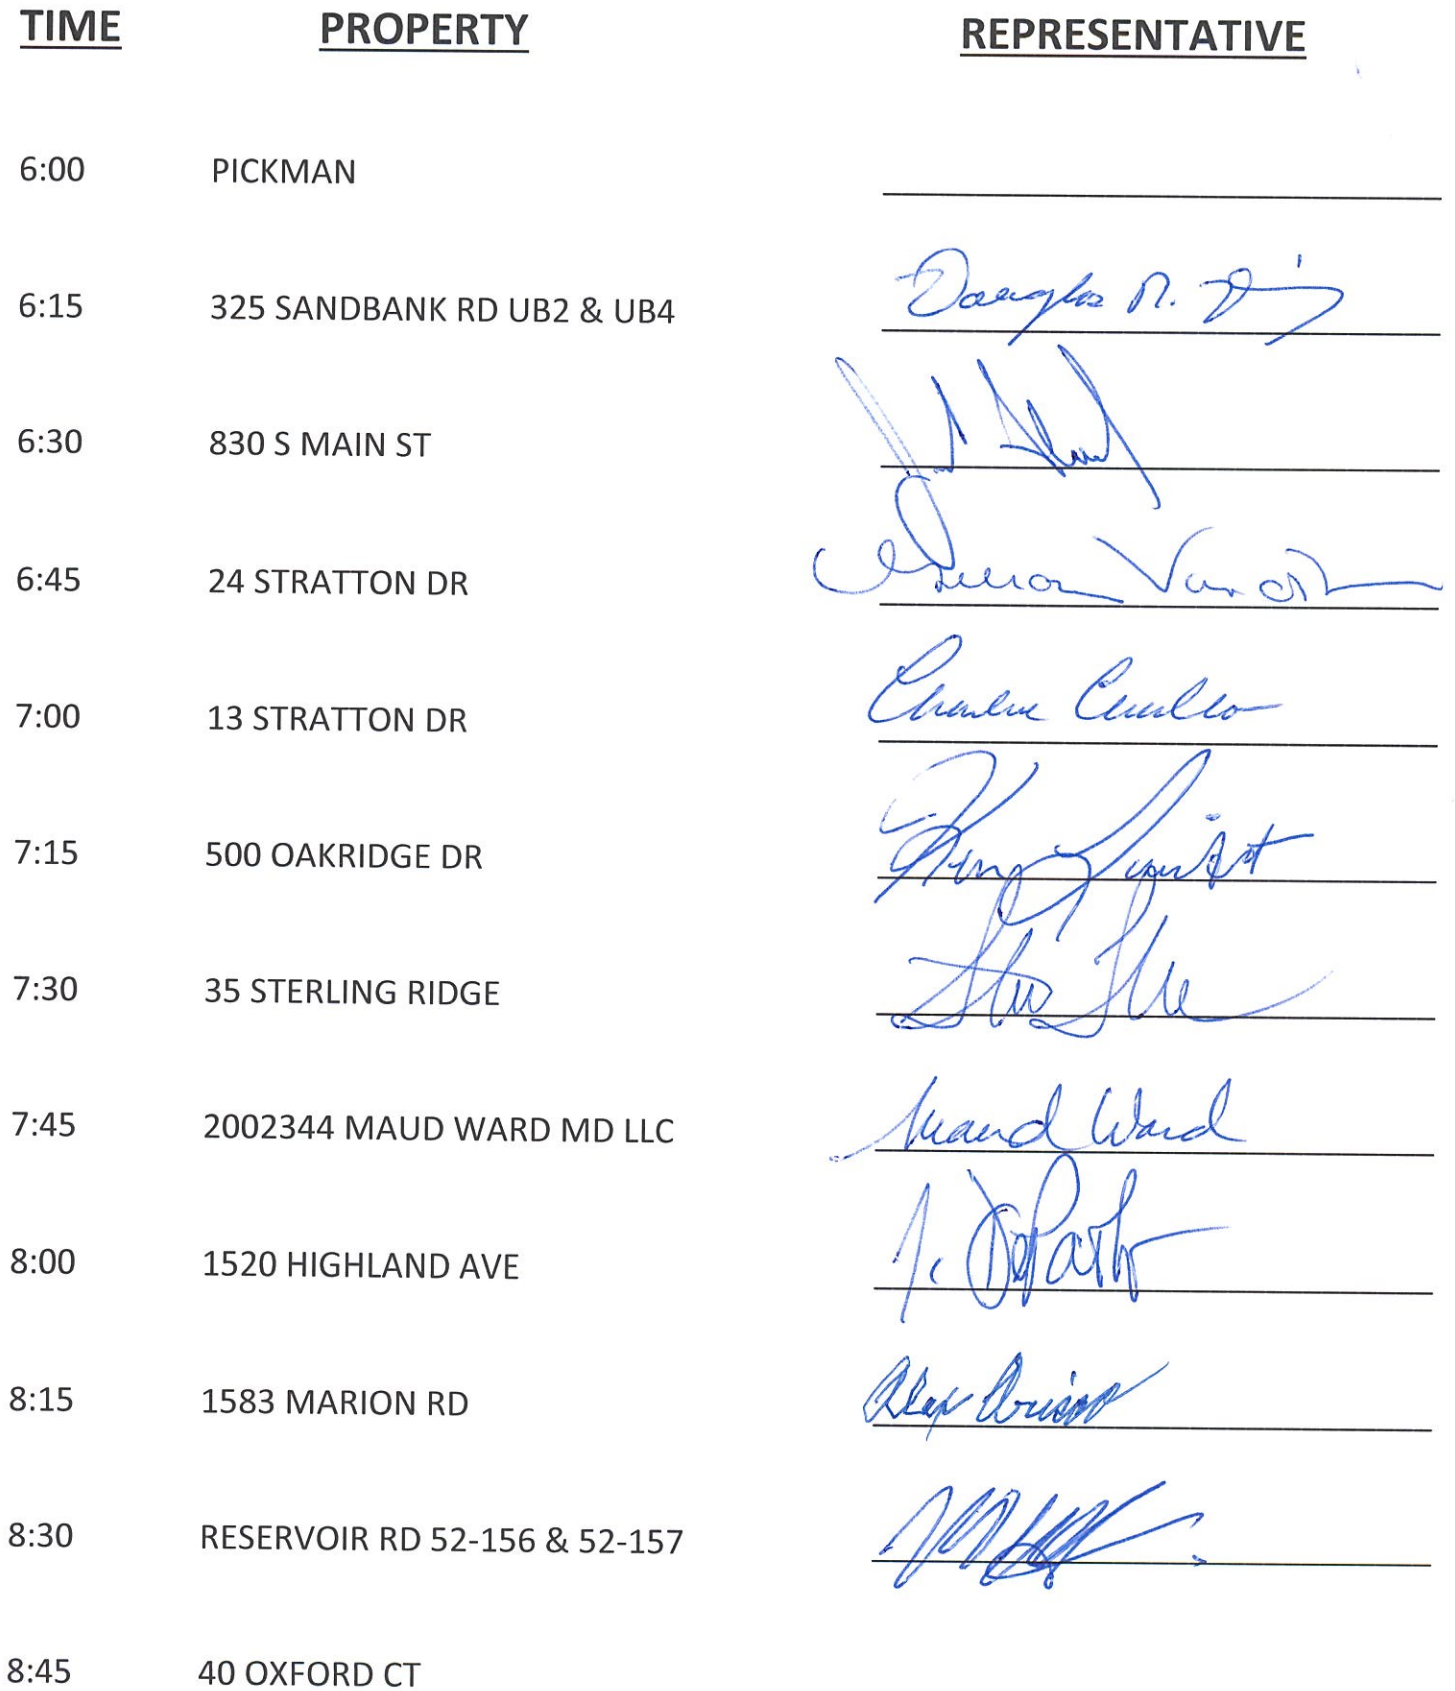 TIME PROPERTY REPRESENTATIVE
6:00 PICKMAN
6:15 325 SANDBANK RD UB2 & UB4 Douglas R.
6:30 830 S MAIN ST
6:45 24 STRATTON DR
7:00 13 STRATTON DR
7:15 500 OAKRIDGE DR
7:30 35 STERLING RIDGE
7:45 2002344 MAUD WARD MD LLC Maud Ward
8:00 1520 HIGHLAND AVE
8:15 1583 MARION RD Alex
8:30 RESERVOIR RD 52-156 & 52-157
8:45 40 OXFORD CT